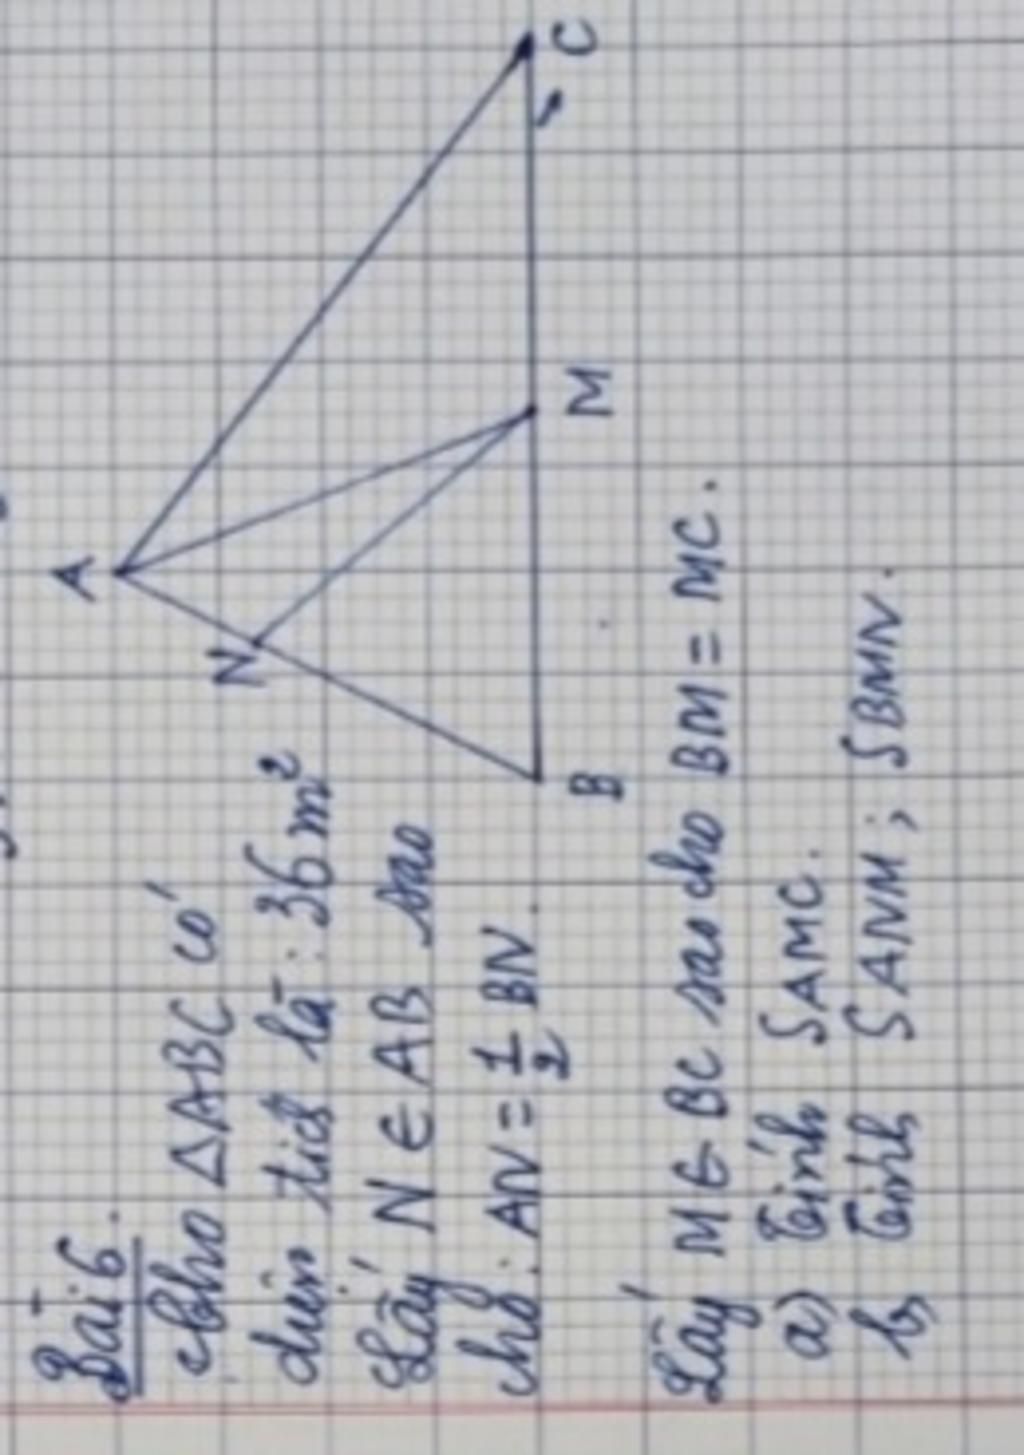 Bài 6.
Cho ΔABC có
diện tích là: 36 m²
Lấy N ∈ AB sao
cho: AN = 1/2 BN.
Lấy M ∈ BC sao cho BM = MC.
a) Tính SAMC.
b, Tính SANM; SBMN.
A
N
B
M
C